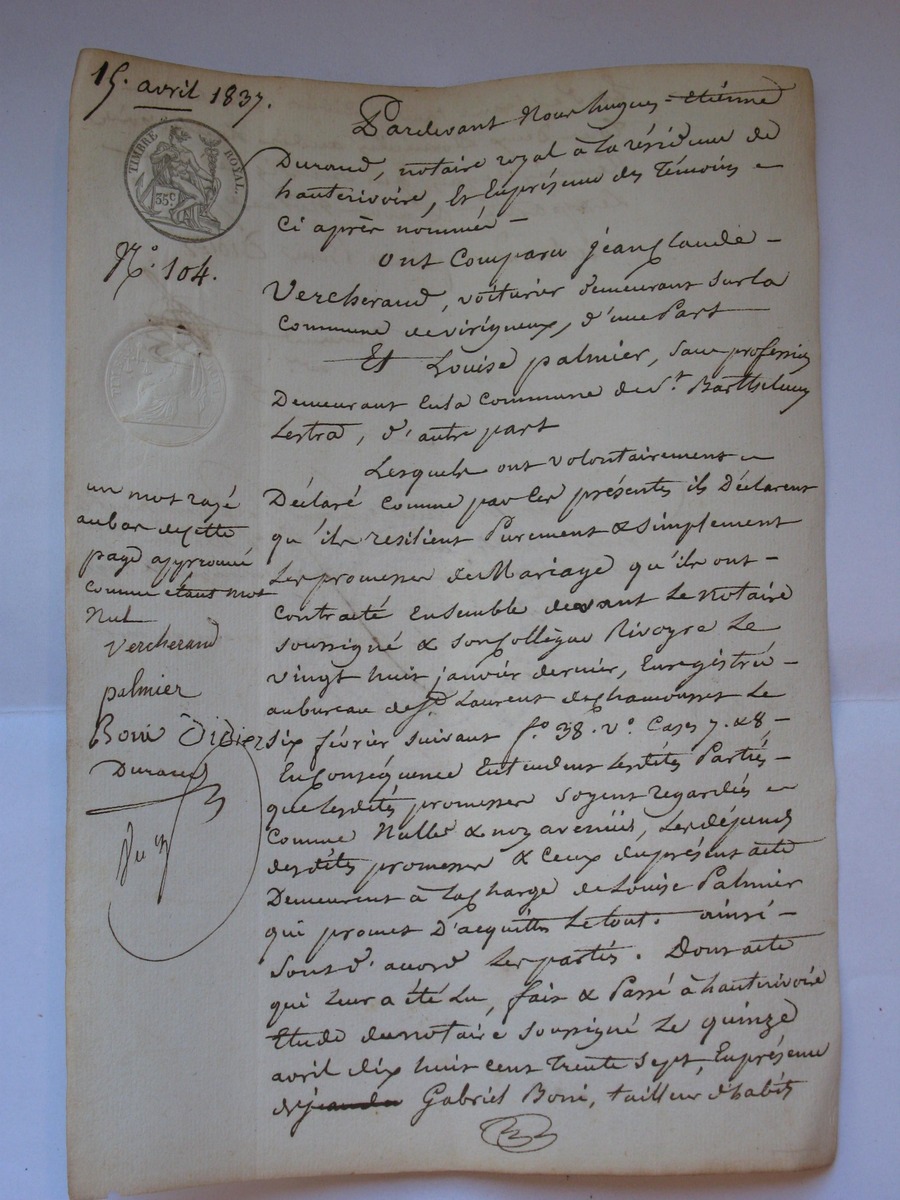 15. avril 1837.
TIMBRE ROYAL.
35 c
N.° 104.
Pardevant Nous hugues - étiénne
Durand, notaire royal à la résidence de
hauterivoire, Et Enprésence des Témoins
Ci après nommés -
ont Comparu jeanClaude -
Vercherand, voiturier demeurant sur la
Commune de virigneux, d'une Part
Et Louise palmier, sans profession
Demeurant Enla Commune de St Barthelemy
Lestrad, d'autre part
Lesquels ont volontairement
Déclaré Comme par Ces présentes ils Déclarent
qu'ils resilient Purement & simplement
Les promesses de Mariage qu'ils ont -
Contracté Ensemble devant Le Notaire
soussigné & son Collègue Rivoyre Le
vingt huit janvier dernier, Enregistré -
aubureau de St Laurent de Chamousset Le
six février suivant f.° 38. v.° Cases 7. & 8 -
EnConséquence Entendent Lesdites Partiés -
que Lesdités promesses soyent regardiés
Comme Nulles & non avenuës, Les dépends
desdités promesses & Ceux duprésent acte
Demeurent à la Charge de Louise Palmier
qui promet D'acquitter Le tout. ainsi -
sont d'accord Les partiés. Dont acte
qui Leur a été Lu, fait & Passé à hauterivoire
Etude du notaire soussigné Le quinze
avril dix huit cent trente sept, Enprésence
de Gabriel Boni, tailleur d'habits
un mot rayé
aubas de Cette
page approuvé
Comme étant mot
Nul
Vercherand
palmier
Boni Didier
Durand